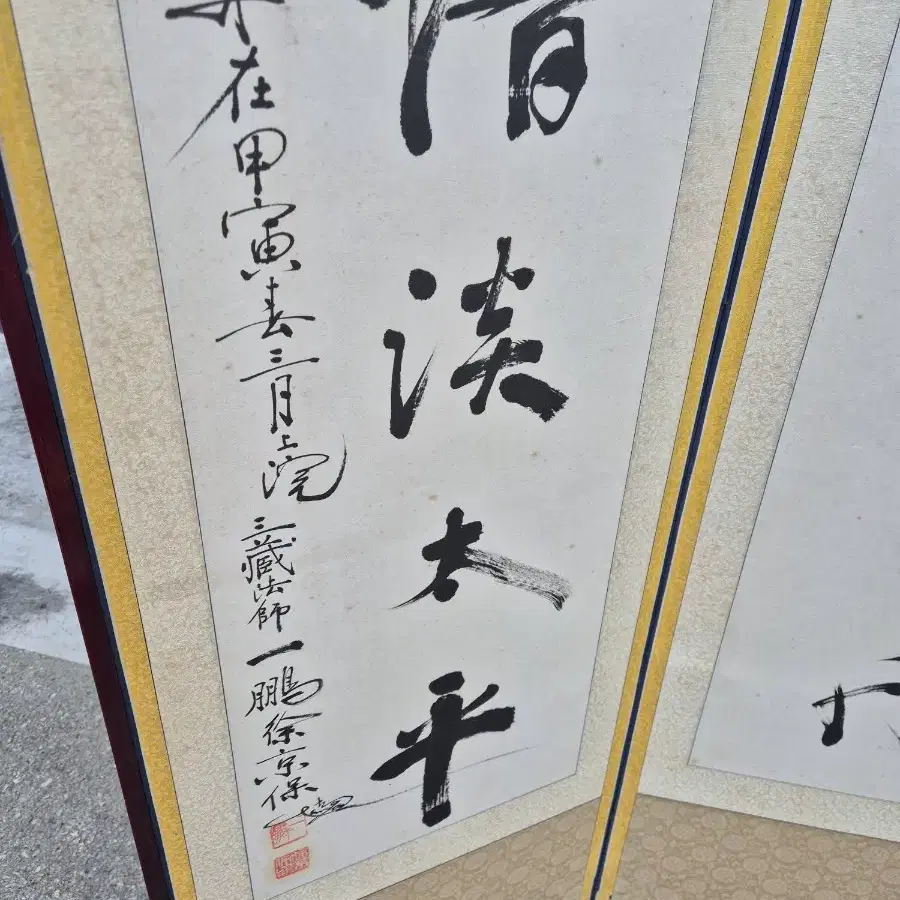 清淡太平
在甲寅春三月上浣 三藏法師 一鵬徐京保